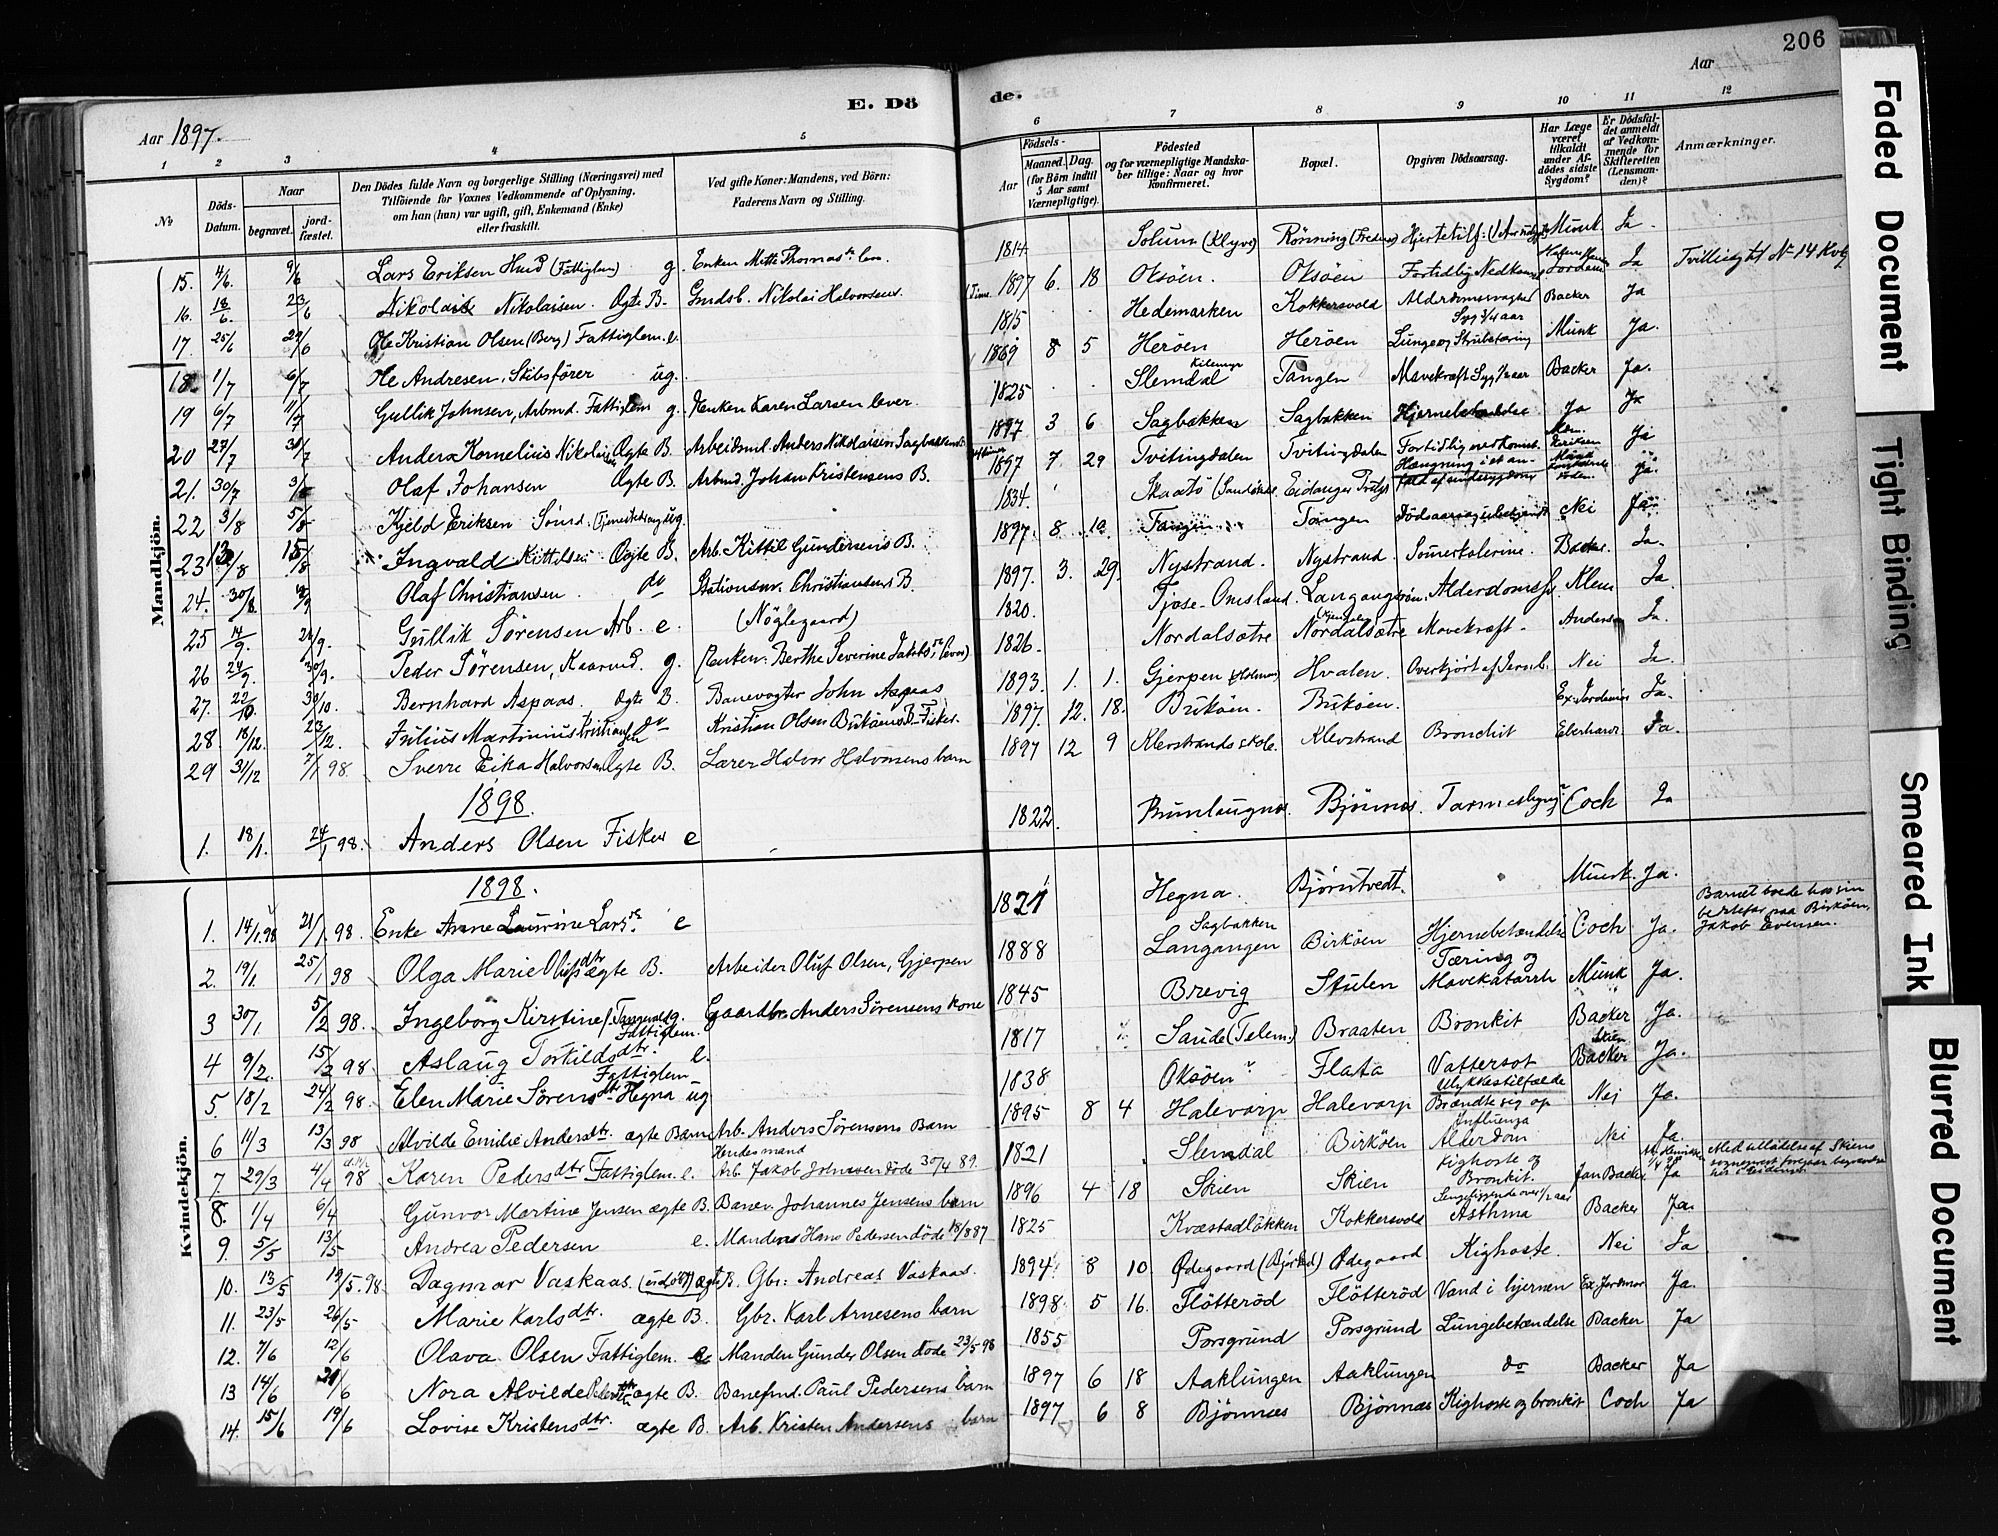 206
Aar
E. Dö
de.
Aar 1897.
1 2 3 4 5 6 7 8 9 10 11 12
No
Döds-Datum.
Naar
begravet.
jord-fæstet.
Den Dödes fulde Navn og borgerlige Stilling (Næringsvei) med
Tilföiende for Voxnes Vedkommende af Oplysning,
om han (hun) var ugift, gift, Enkemand (Enke)
eller fraskilt.
Ved gifte Koner: Mandens, ved Börn:
Faderens Navn og Stilling.
Födsels-
Aar
Maaned. Dag.
(for Börn indtil
5 Aar samt
Værnepligtige).
Födested
og for værnepligtige Mandska-
ber tillige: Naar og hvor
konfirmeret.
Bopæl.
Opgiven Dödsaarsag.
Har Læge
været
tilkaldt
under Af-
dödes sidste
Sygdom?
Er Dödsfal-
det anmeldt
af Vedkom-
mende for
Skifteretten
(Lensman-
den)?
Anmærkninger.
Mandkjön.
15. 4/6. 9/6 Lars Eriksen Hud (Fattiglem) g. 1814 Solum (Klyve) Rönning Munk Ja.
16. 18/6. 23/6 Nikolai Nikolaisen. Ægte B. Gmdsb. Nikolai Halvorsens. 1897 6. 18 Oksöen. Oksöen Ja Tvillingfødt No 14 Kvkj
17. 25/6 29/6 Ole Kristian Olsen (Berg) Fattiglem. e. 1815 Hedemarken Kokkersvold Backer Ja
18. 1/7 6/7 Ole Andresen, Skibsförer ug. 1869 8 5 Heröen Heröen Munk Ja.
19 6/7 11/7 Gullik Johnsen, Arbmd. Fattiglem g. Enken Karen Larsen lever. 1825 Slemdal Tangen Mavekræft Syg 1/2 aar Backer Ja.
20 27/7 30/7 Anders Kornelius Nikolai Ægte B. Arbeidsmd. Anders Nikolaisen Sagbakken 1897 3 6 Sagbakken Sagbakken Hjernebetændelse Ja Ja
21. 30/7 Olaf Johansen Ægte B. Arbmd. Johan Kristensens B. 1897 7. 29 Tvitingdalen Tvitingdalen Fortidlig nedkomst. Ja
22 3/8 5/8 Kjeld Eriksen ug. 1834. Skaatö Eidanger Hængning i et an-fald af sindssygdom Ja.
23 13/8 15/8 Ingvald Kittilsen Ægte B. Arb. Kittil Gundersens B. 1897. 8 10 Tangen Tangen Dödsaarsag ubekjendt Nei Ja.
24. 30/8. Olaf Christiansen do Stationsmr. Christiansens B. 1897. 3. 29. Nystrand. Nystrand. Somerkolerine. Backer. Ja.
25 14/9. Gullik Sörensen Arb. e. (Nöglegaard) 1820. Tjose-Omsland. Klem Ja
26 24/9. 30/9. Peder Sörensen, Kaarmd. g. (Enken: Berthe Severine Jakobs 1826. Nordalsætre Nordalsætre Mavekræft. Anderson Ja.
27. 22/10. 30/10. Bernhard Aspaas. Ægte B. Banevogter John Aspaas 1893. 1. 1. Gjerpen Hvalen. Overkjört af Jernb. Nei Ja.
28 18/12. 23/12. Julius Martinius Kristiansen do Kristian Olsen Buköens B. Fisker. 1897. 12. 18. Buköen. Buköen. Ex. Jordemor Ja.
29 31/12 7/1 98. Sverre Eika Halvorsen Ægte B. Lærer Halvor Halvorsens barn 1897 12 9 Klevstrands skole. Klevstrand Bronchit Eberhardt Ja.
1898.
1. 18/1. 24/1 98. Anders Olsen Fisker e 1822. Brunlaugnæs. Bjönnes Coch Ja
Kvindekjön.
1898.
1. 14/1.98 21/1 98. Enke Anne Laurine Larsdtr. e 1821 Hegna. Björntvedt. Munk. Ja.
2. 19/1. 25/1 98 Olga Marie Olufsdtr ægte B. Arbeider Oluf Olsen, Gjerpen 1888 Sagbakken Langangen Birköen Hjernebetændelse Coch Ja. Barnet boede hos sin bedstefar paa Birköen, Jakob Evensen.
3 30/1 5/2 98. Ingeborg Kirstine g. Gaardbr. Anders Sörensens kone 1845 Brevig Stulen Tæring og Mavekatarrh Munk Ja.
4 9/2. 15/2 98 Aslaug Torkildsdtr. Fattiglem. e. 1817 Saude (Telem.) Braaten Bronkit Backer Ja.
5 18/2 24/2 98. Elen Marie Sörensdtr Hegna Fattiglem ug 1838 Oksöen Flata Vattersot Backer Skien Ja.
6 11/3 13/3 98 Alvilde Emilie Andersdtr. ægte Barn Arb. Anders Sörensens Barn 1895 8 4 Halevarp Halevarp Ulykkestilfælde Brændte sig op Nei Ja.
7. 29/3 4/4 98 Karen Pedersdtr Fattiglem. e. Hendes mand Arb. Jakob Johnsen döde 30/4 89. 1821 Slemdal Birköen Influenza Alderdom Nei Ja
8. 1/4 6/4 Gunvor Martine Jensen ægte B. Banev. Johannes Jensens barn 1896 4 18 Skien Skien Kighoste og Bronkit. Jan Backer Ja Med tilladelse af Skiens sogneprest foregaar begravelse her i Eidanger
9. 5/5 13/5 Andrea Pedersen e. Manden Hans Pedersen döde 18/8 87 1825 Kvæstadlökken Kokkersvold Sengeliggende over 1/2 aar Asthma Backer Ja.
10. 13/5 19/5.98 Dagmar Vaskaas. ægte B. Gbr: Andreas Vaskaas. 1894 8 10 Ødegaard Ødegaard Kighoste. Nei Ja
11. 23/5 26/5 Marie Karlsdtr. ægte B. Gbr. Karl Arnesens barn 1898 5 16. Flötteröd Flötteröd Vand i hjernen Ex. Jordmor Ja.
12. 7/6 12/6 Olava Olsen Fattiglem. e Manden Gunder Olsen döde 23/5-98 1855 Porsgrund Porsgrund Lungebetændelse Backer Ja
13 14/6 Nora Alvilde ægte B. Banefmd. Paul Pedersens barn 1897 6 18 Aaklungen Aaklungen do Backer Ja
14. 15/6 19/6 Lovise Kristensdtr. ægte B. Arb. Kristen Andersens barn 1897 6 8 Bjönnes Bjönnes Kighoste og bronkit Coch Ja
Faded Document
Tight Binding
Smeared Ink
Blurred Document